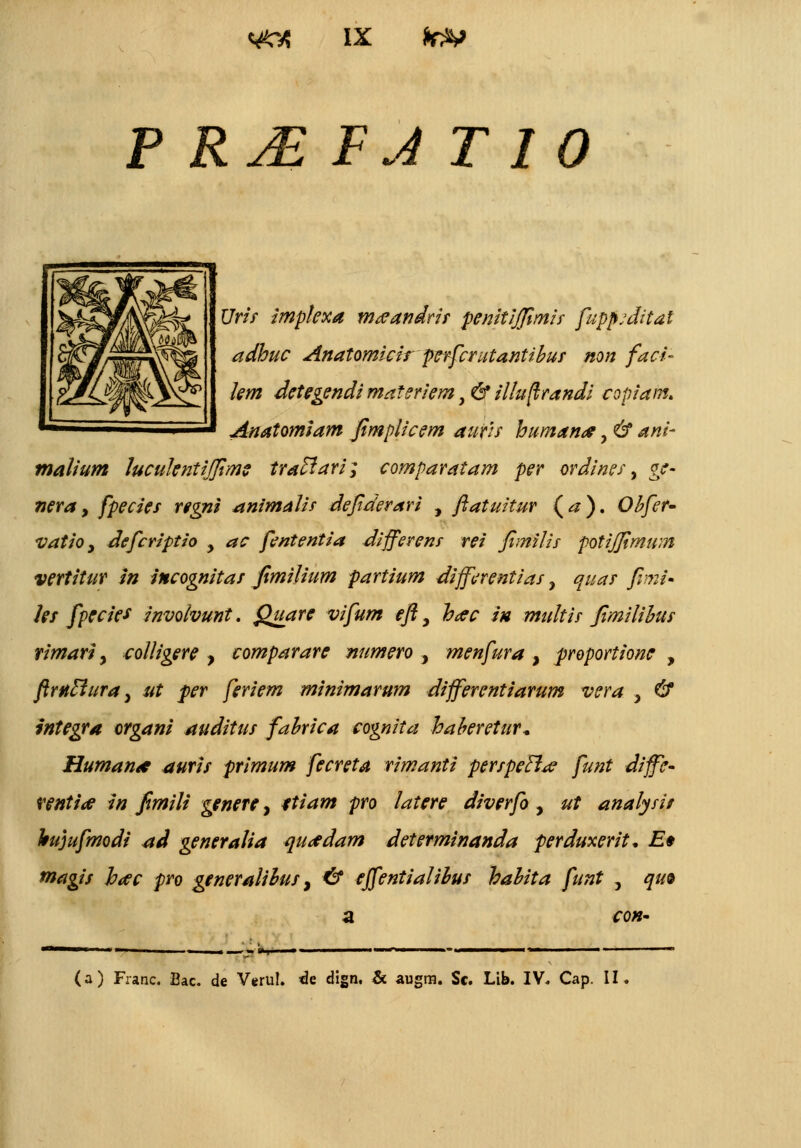 IX
PRÆFATIO
AUris implexa mæandris penitiſſimis ſuppeditat
adhuc Anatomicis perſcrutantibus non faci-
lem detegendi materiem, & illuſtrandi copiam.
Anatomiam ſimplicem auris humanæ, & ani-
malium luculentiſſime tractari; comparatam per ordines, ge-
nera, ſpecies regni animalis deſiderari, ſtatuitur (a). Obſer-
vatio, deſcriptio, ac ſententia differens rei ſimilis potiſſimum
vertitur in incognitas ſimilium partium differentias, quas ſimi-
les ſpecies involvunt. Quare viſum eſt, hæc in multis ſimilibus
rimari, colligere, comparare numero, menſura, proportione,
ſtructura, ut per ſeriem minimarum differentiarum vera, &
integra organi auditus fabrica cognita haberetur.
Humanæ auris primum ſecreta rimanti perspectæ ſunt diffe-
rentiæ in ſimili genere, etiam pro latere diverſo, ut analysis
hujuſmodi ad generalia quædam determinanda perduxerit. Eo
magis hæc pro generalibus, & eſſentialibus habita ſunt, quo
a con-
(a) Franc. Bac. de Verul. de dign. & augm. Sc. Lib. IV. Cap. II.